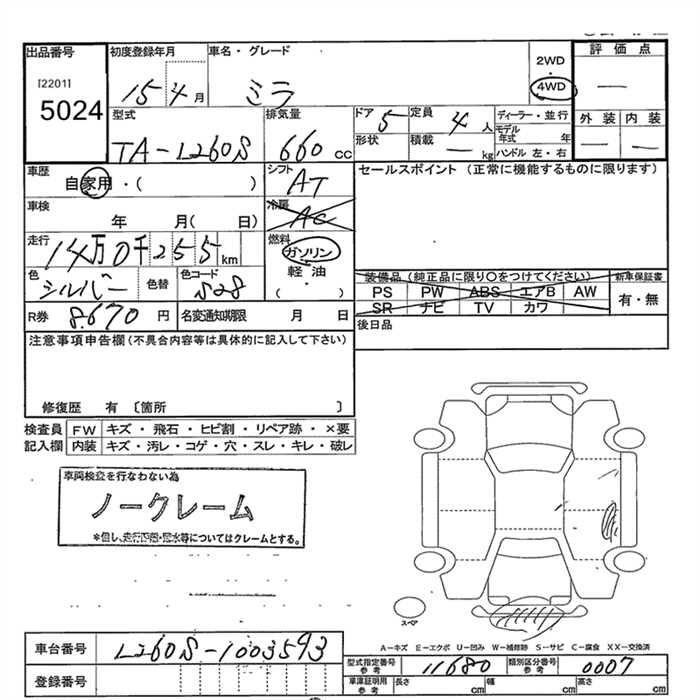 出品番号 初度登録年月 車名・グレード 2WD 評価点
[2201] 4WD —
5024 15 4月 ミラ 外装 内装
型式 排気量 ドア 5 定員 4人 ディーラー・並行 — —
モデル年式 年
TA-L260S 660cc 形状 積載 — kg ハンドル 左・右
車歴 シフト セールスポイント (正常に機能するものに限ります)
自家用・( ) AT
車検 冷房
年 月( 日) AC
走行 14万0千255km 燃料 ガソリン
色 シルバー 色替 色コード S28 軽・油 装備品 (純正品に限り〇をつけてください) 新車保証書
( ) PS PW ABS エアB AW 有・無
SR ナビ TV カワ
R券 8,670円 名変通知期限 月 日 後日品
注意事項申告欄(不具合内容等は具体的に記入して下さい)
修復歴 有 〔箇所 〕
検査員 FW キズ・飛石・ヒビ割・リペア跡・×要
記入欄 内装 キズ・汚レ・コゲ・穴・スレ・キレ・破レ
車両検査を行なわない為
ノークレーム
*但し、走行距離・冠水等についてはクレームとする。
スペア
A−キズ E−エクボ U−凹み W−補修跡 S−サビ C−腐食 XX−交換済
車台番号 L260S-1003593
型式指定番号 参考 11680 類別区分番号 参考 0007
登録番号 車庫証明用 参考 長さ cm 幅 cm 高さ cm